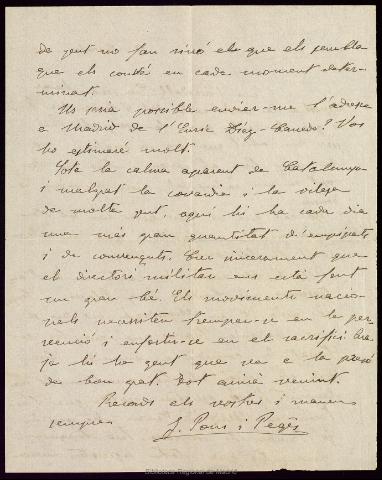 de gent no fan sinó els que els sembla
que els convé en cada moment deter-
minat.
Us seria possible enviar-me l'adreça
a Madrid de l'Enric Díez-Canedo? Vos
ho estimaré molt.
Sota la calma aparent de Catalunya
i malgrat la covardia i la vilesa
de molta gent, aquí hi ha cada dia
una més gran quantitat d'empipats
i de convençuts. Crec sincerament que
el directori militar ens està fent
un gran bé. Els moviments nacio-
nals necessiten trempar-se en la per-
secució i enfortir-se en el sacrifici. Ara
ja hi ha gent que va a la presó
de bon grat. Tot anirà venint.
Records als vostres i maneu
sempre
J. Pous i Pagès
Biblioteca Regional de Madrid